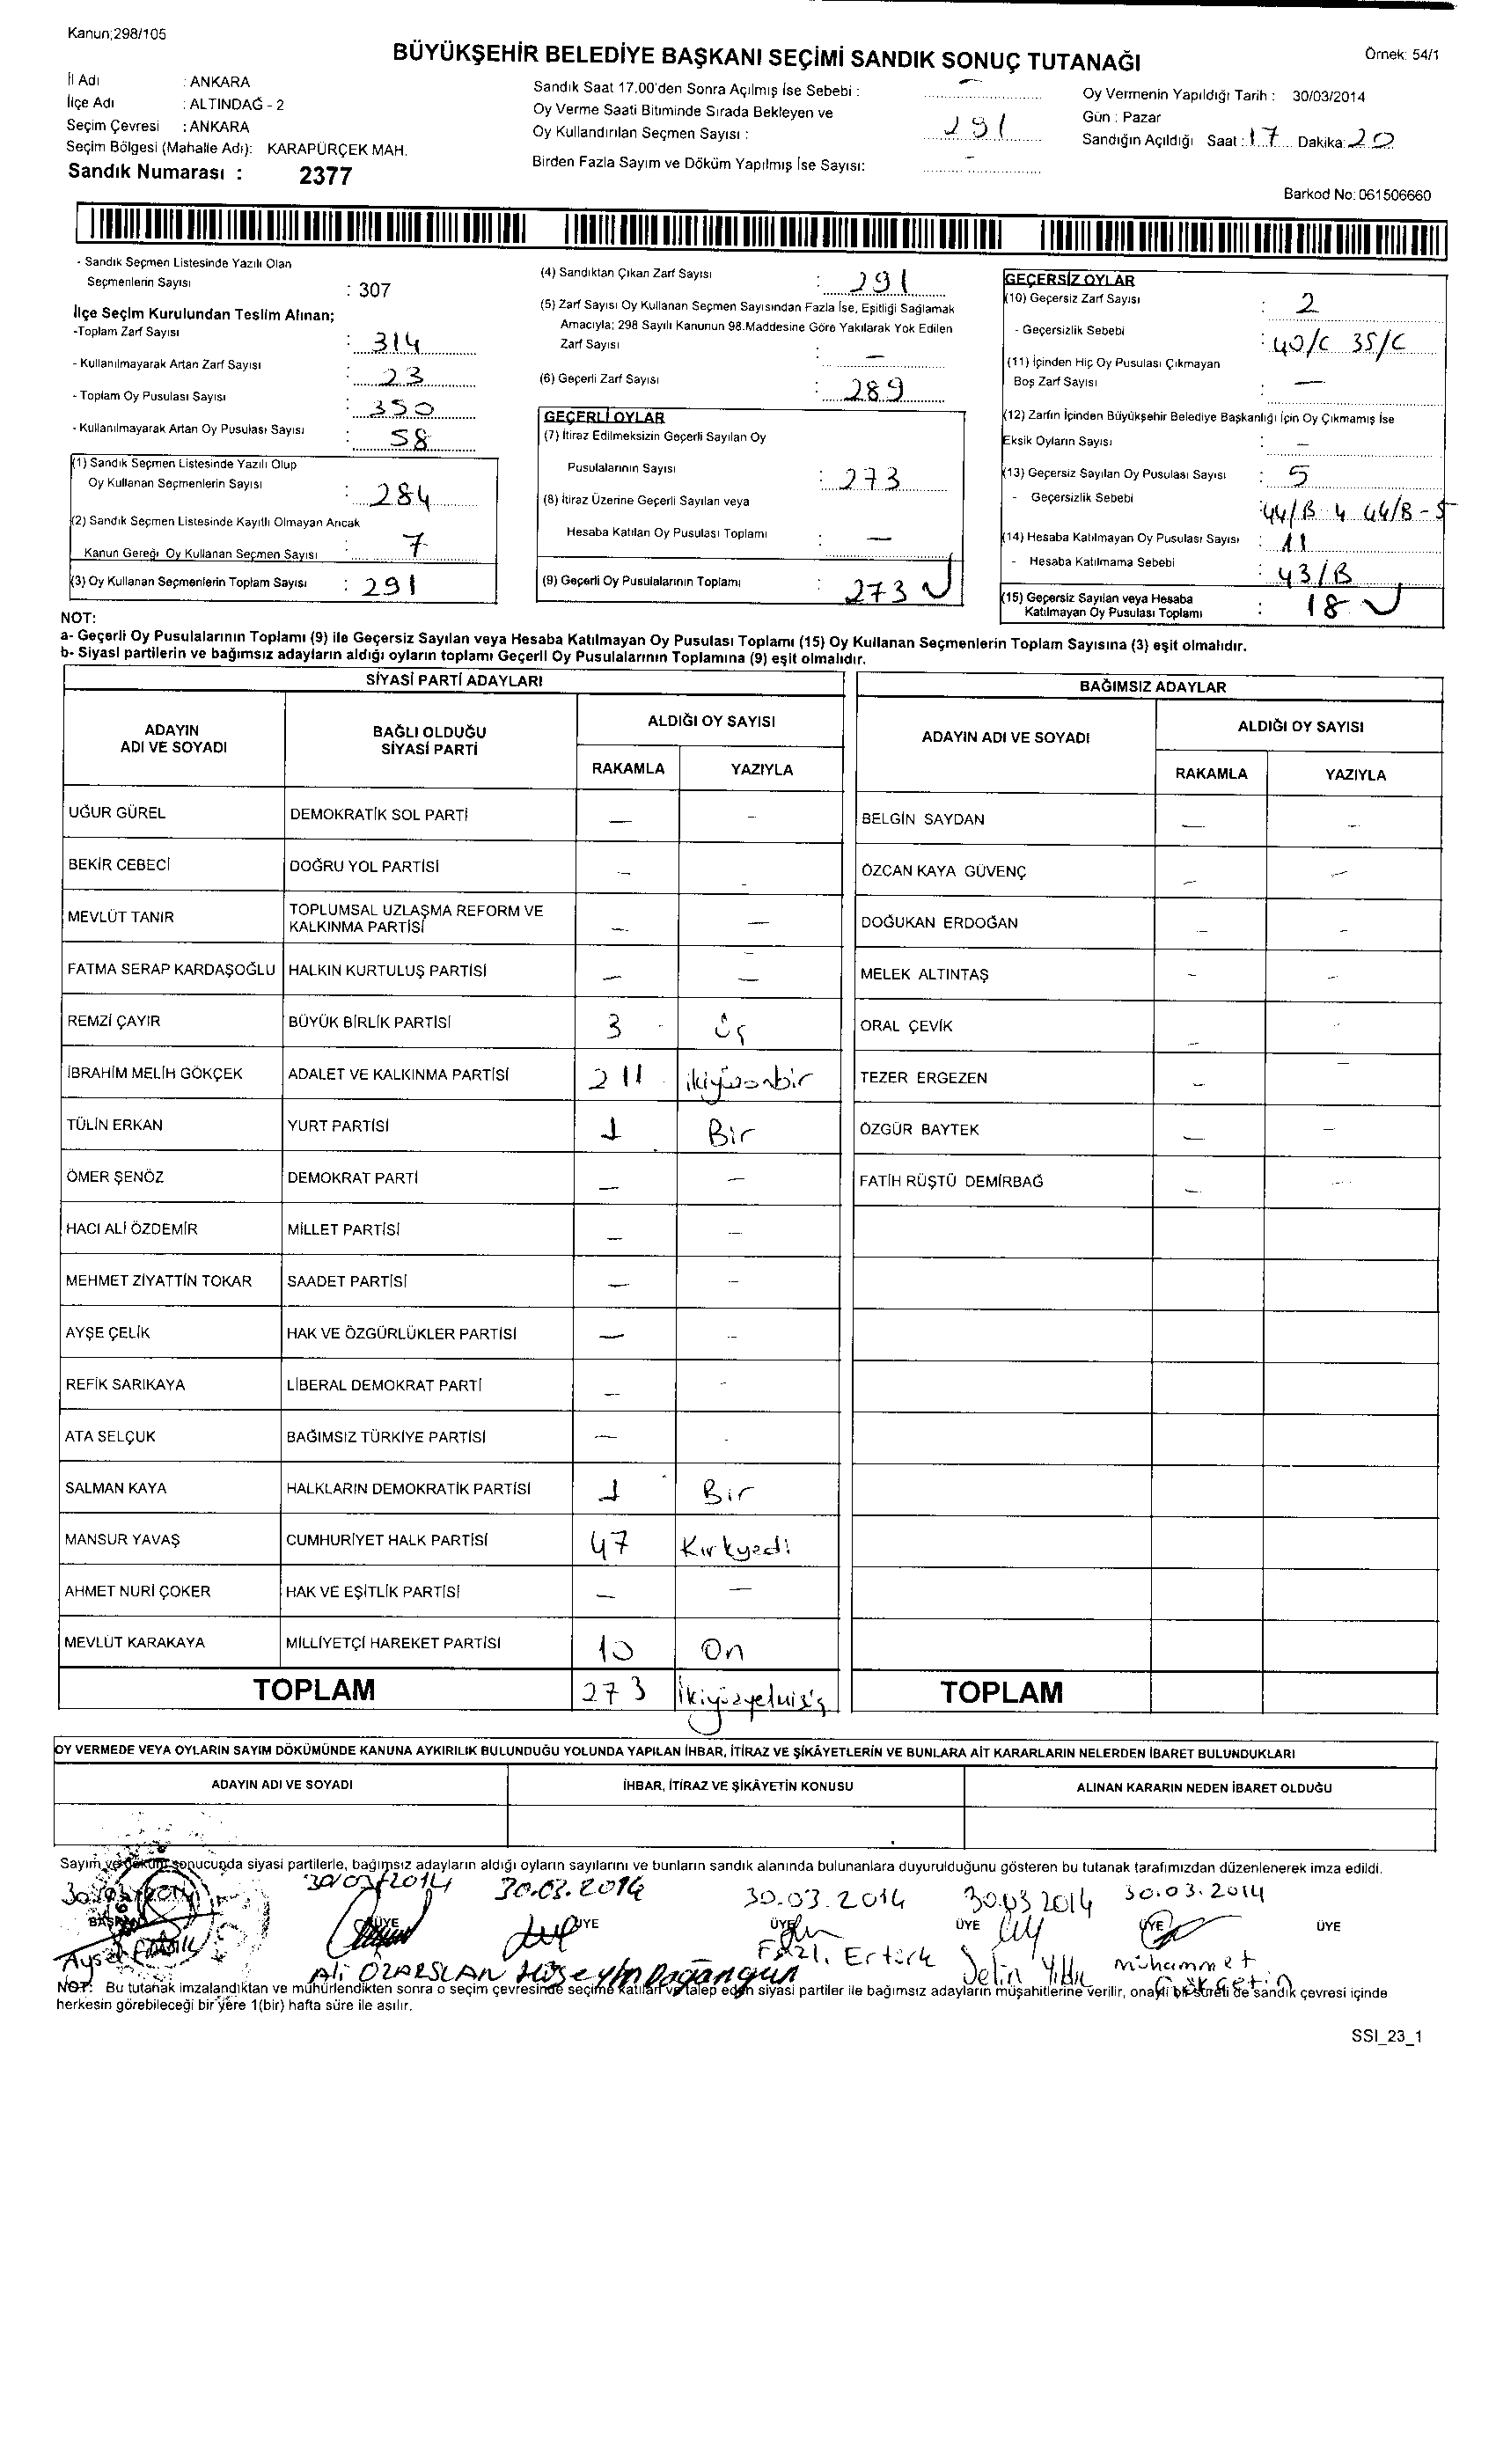 Kanun;298/105
BÜYÜKŞEHİR BELEDİYE BAŞKANI SEÇİMİ SANDIK SONUÇ TUTANAĞI
Örnek: 54/1
İl Adı : ANKARA
İlçe Adı : ALTINDAĞ - 2
Seçim Çevresi : ANKARA
Seçim Bölgesi (Mahalle Adı): KARAPÜRÇEK MAH.
Sandık Numarası : 2377
Sandık Saat 17.00'den Sonra Açılmış İse Sebebi : -
Oy Verme Saati Bitiminde Sırada Bekleyen ve
Oy Kullandırılan Seçmen Sayısı : 291
Birden Fazla Sayım ve Döküm Yapılmış İse Sayısı: -
Oy Vermenin Yapıldığı Tarih : 30/03/2014
Gün : Pazar
Sandığın Açıldığı Saat : 17 Dakika: 20
Barkod No: 061506660
- Sandık Seçmen Listesinde Yazılı Olan
Seçmenlerin Sayısı : 307
İlçe Seçim Kurulundan Teslim Alınan;
-Toplam Zarf Sayısı : 314
- Kullanılmayarak Artan Zarf Sayısı : 23
- Toplam Oy Pusulası Sayısı : 350
- Kullanılmayarak Artan Oy Pusulası Sayısı : 58
(1) Sandık Seçmen Listesinde Yazılı Olup
Oy Kullanan Seçmenlerin Sayısı : 284
(2) Sandık Seçmen Listesinde Kayıtlı Olmayan Ancak
Kanun Gereği Oy Kullanan Seçmen Sayısı : 7
(3) Oy Kullanan Seçmenlerin Toplam Sayısı : 291
(4) Sandıktan Çıkan Zarf Sayısı : 291
(5) Zarf Sayısı Oy Kullanan Seçmen Sayısından Fazla İse, Eşitliği Sağlamak
Amacıyla; 298 Sayılı Kanunun 98.Maddesine Göre Yakılarak Yok Edilen
Zarf Sayısı : -
(6) Geçerli Zarf Sayısı : 289
GEÇERLİ OYLAR
(7) İtiraz Edilmeksizin Geçerli Sayılan Oy
Pusulalarının Sayısı : 273
(8) İtiraz Üzerine Geçerli Sayılan veya
Hesaba Katılan Oy Pusulası Toplamı : -
(9) Geçerli Oy Pusulalarının Toplamı : 273
GEÇERSİZ OYLAR
(10) Geçersiz Zarf Sayısı : 2
- Geçersizlik Sebebi : 40/C 35/C
(11) İçinden Hiç Oy Pusulası Çıkmayan
Boş Zarf Sayısı : -
(12) Zarfın İçinden Büyükşehir Belediye Başkanlığı İçin Oy Çıkmamış İse
Eksik Oyların Sayısı : -
(13) Geçersiz Sayılan Oy Pusulası Sayısı : 5
- Geçersizlik Sebebi : 44/B 4 44/B - 5
(14) Hesaba Katılmayan Oy Pusulası Sayısı : 11
- Hesaba Katılmama Sebebi : 43/B
(15) Geçersiz Sayılan veya Hesaba
Katılmayan Oy Pusulası Toplamı : 18
NOT:
a- Geçerli Oy Pusulalarının Toplamı (9) ile Geçersiz Sayılan veya Hesaba Katılmayan Oy Pusulası Toplamı (15) Oy Kullanan Seçmenlerin Toplam Sayısına (3) eşit olmalıdır.
b- Siyasi partilerin ve bağımsız adayların aldığı oyların toplamı Geçerli Oy Pusulalarının Toplamına (9) eşit olmalıdır.
SİYASİ PARTİ ADAYLARI
ADAYIN ADI VE SOYADI BAĞLI OLDUĞU SİYASİ PARTİ ALDIĞI OY SAYISI
RAKAMLA YAZIYLA
UĞUR GÜREL DEMOKRATİK SOL PARTİ - -
BEKİR CEBECİ DOĞRU YOL PARTİSİ - -
MEVLÜT TANIR TOPLUMSAL UZLAŞMA REFORM VE KALKINMA PARTİSİ - -
FATMA SERAP KARDAŞOĞLU HALKIN KURTULUŞ PARTİSİ - -
REMZİ ÇAYIR BÜYÜK BİRLİK PARTİSİ 3 Üç
İBRAHİM MELİH GÖKÇEK ADALET VE KALKINMA PARTİSİ 211 ikiyüzonbir
TÜLİN ERKAN YURT PARTİSİ 1 Bir
ÖMER ŞENÖZ DEMOKRAT PARTİ - -
HACI ALİ ÖZDEMİR MİLLET PARTİSİ - -
MEHMET ZİYATTİN TOKAR SAADET PARTİSİ - -
AYŞE ÇELİK HAK VE ÖZGÜRLÜKLER PARTİSİ - -
REFİK SARIKAYA LİBERAL DEMOKRAT PARTİ - -
ATA SELÇUK BAĞIMSIZ TÜRKİYE PARTİSİ - -
SALMAN KAYA HALKLARIN DEMOKRATİK PARTİSİ 1 Bir
MANSUR YAVAŞ CUMHURİYET HALK PARTİSİ 47 Kırkyedi
AHMET NURİ ÇOKER HAK VE EŞİTLİK PARTİSİ - -
MEVLÜT KARAKAYA MİLLİYETÇİ HAREKET PARTİSİ 10 On
TOPLAM 273
BAĞIMSIZ ADAYLAR
ADAYIN ADI VE SOYADI ALDIĞI OY SAYISI
RAKAMLA YAZIYLA
BELGİN SAYDAN - -
ÖZCAN KAYA GÜVENÇ - -
DOĞUKAN ERDOĞAN - -
MELEK ALTINTAŞ - -
ORAL ÇEVİK - -
TEZER ERGEZEN - -
ÖZGÜR BAYTEK - -
FATİH RÜŞTÜ DEMİRBAĞ - -
TOPLAM
OY VERMEDE VEYA OYLARIN SAYIM DÖKÜMÜNDE KANUNA AYKIRILIK BULUNDUĞU YOLUNDA YAPILAN İHBAR, İTİRAZ VE ŞİKÂYETLERİN VE BUNLARA AİT KARARLARIN NELERDEN İBARET BULUNDUKLARI
ADAYIN ADI VE SOYADI İHBAR, İTİRAZ VE ŞİKÂYETİN KONUSU ALINAN KARARIN NEDEN İBARET OLDUĞU
Sayım ve döküm sonucunda siyasi partilerle, bağımsız adayların aldığı oyların sayılarını ve bunların sandık alanında bulunanlara duyurulduğunu gösteren bu tutanak tarafımızdan düzenlenerek imza edildi.
30/03/2014 30.03.2014 30.03.2014 30.03 2014 30.03.2014
BAŞKAN ÜYE ÜYE ÜYE ÜYE ÜYE ÜYE
Aysel Ali ÖZARSLAN Hüseyin Doğangün Fazlı Ertürk Muhammet
NOT: Bu tutanak imzalandıktan ve mühürlendikten sonra o seçim çevresinde seçime katılan ve talep eden siyasi partiler ile bağımsız adayların müşahitlerine verilir, onaylı bir sureti de sandık çevresi içinde
herkesin görebileceği bir yere 1(bir) hafta süre ile asılır.
SSI_23_1